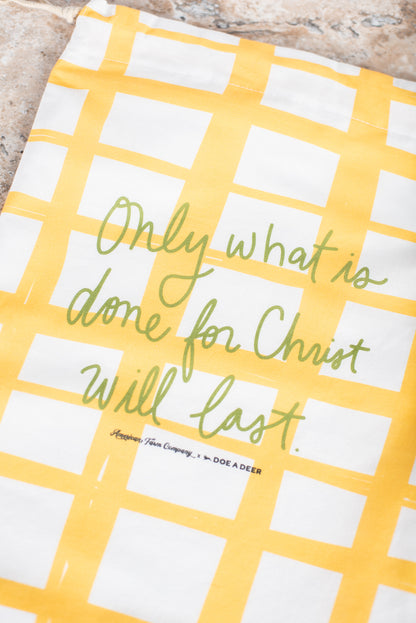 Only what is
done for Christ
Will last.
American Farm Company x DOE A DEER